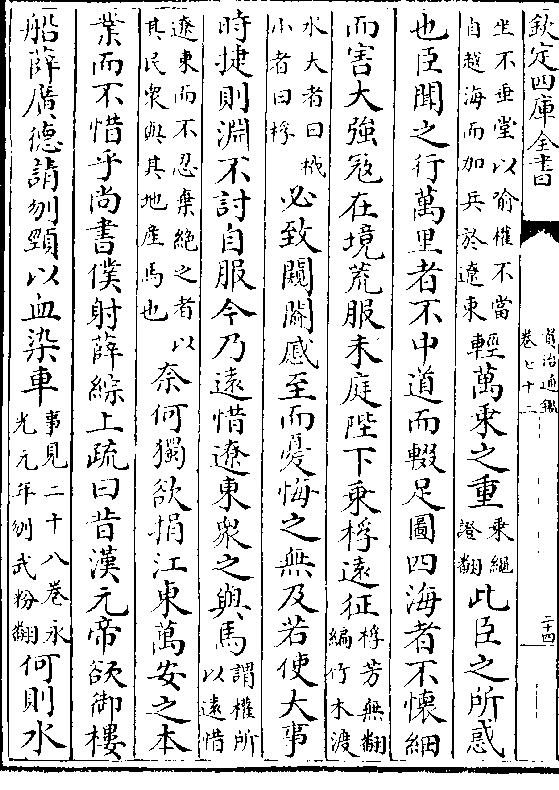 欽定四庫全書
資治通鑑
卷七十二
二十四
坐不垂堂以喻權不當
自越海而加兵於遼東
輕萬乘之重
乘繩
證翻
此臣之所惑
也臣聞之行萬里者不中道而輟足圖四海者不懷細
而害大強寇在境荒服未庭陛下乗桴遠征
桴芳無翻
編竹木渡
水大者曰栰
小者曰桴
必致闚𨵦慼至而憂悔之無及若使大事
時捷則淵不討自服今乃遠惜遼東衆之與馬
謂權所
以遠惜
遼東而不忍棄絶之者以
其民衆與其地産馬也
奈何獨欲捐江東萬安之本
業而不惜乎尚書僕射薛綜上疏曰昔漢元帝欲御樓
船薛廣德請刎頸以血染車
事見二十八卷永
光元年刎武粉翻
何則水